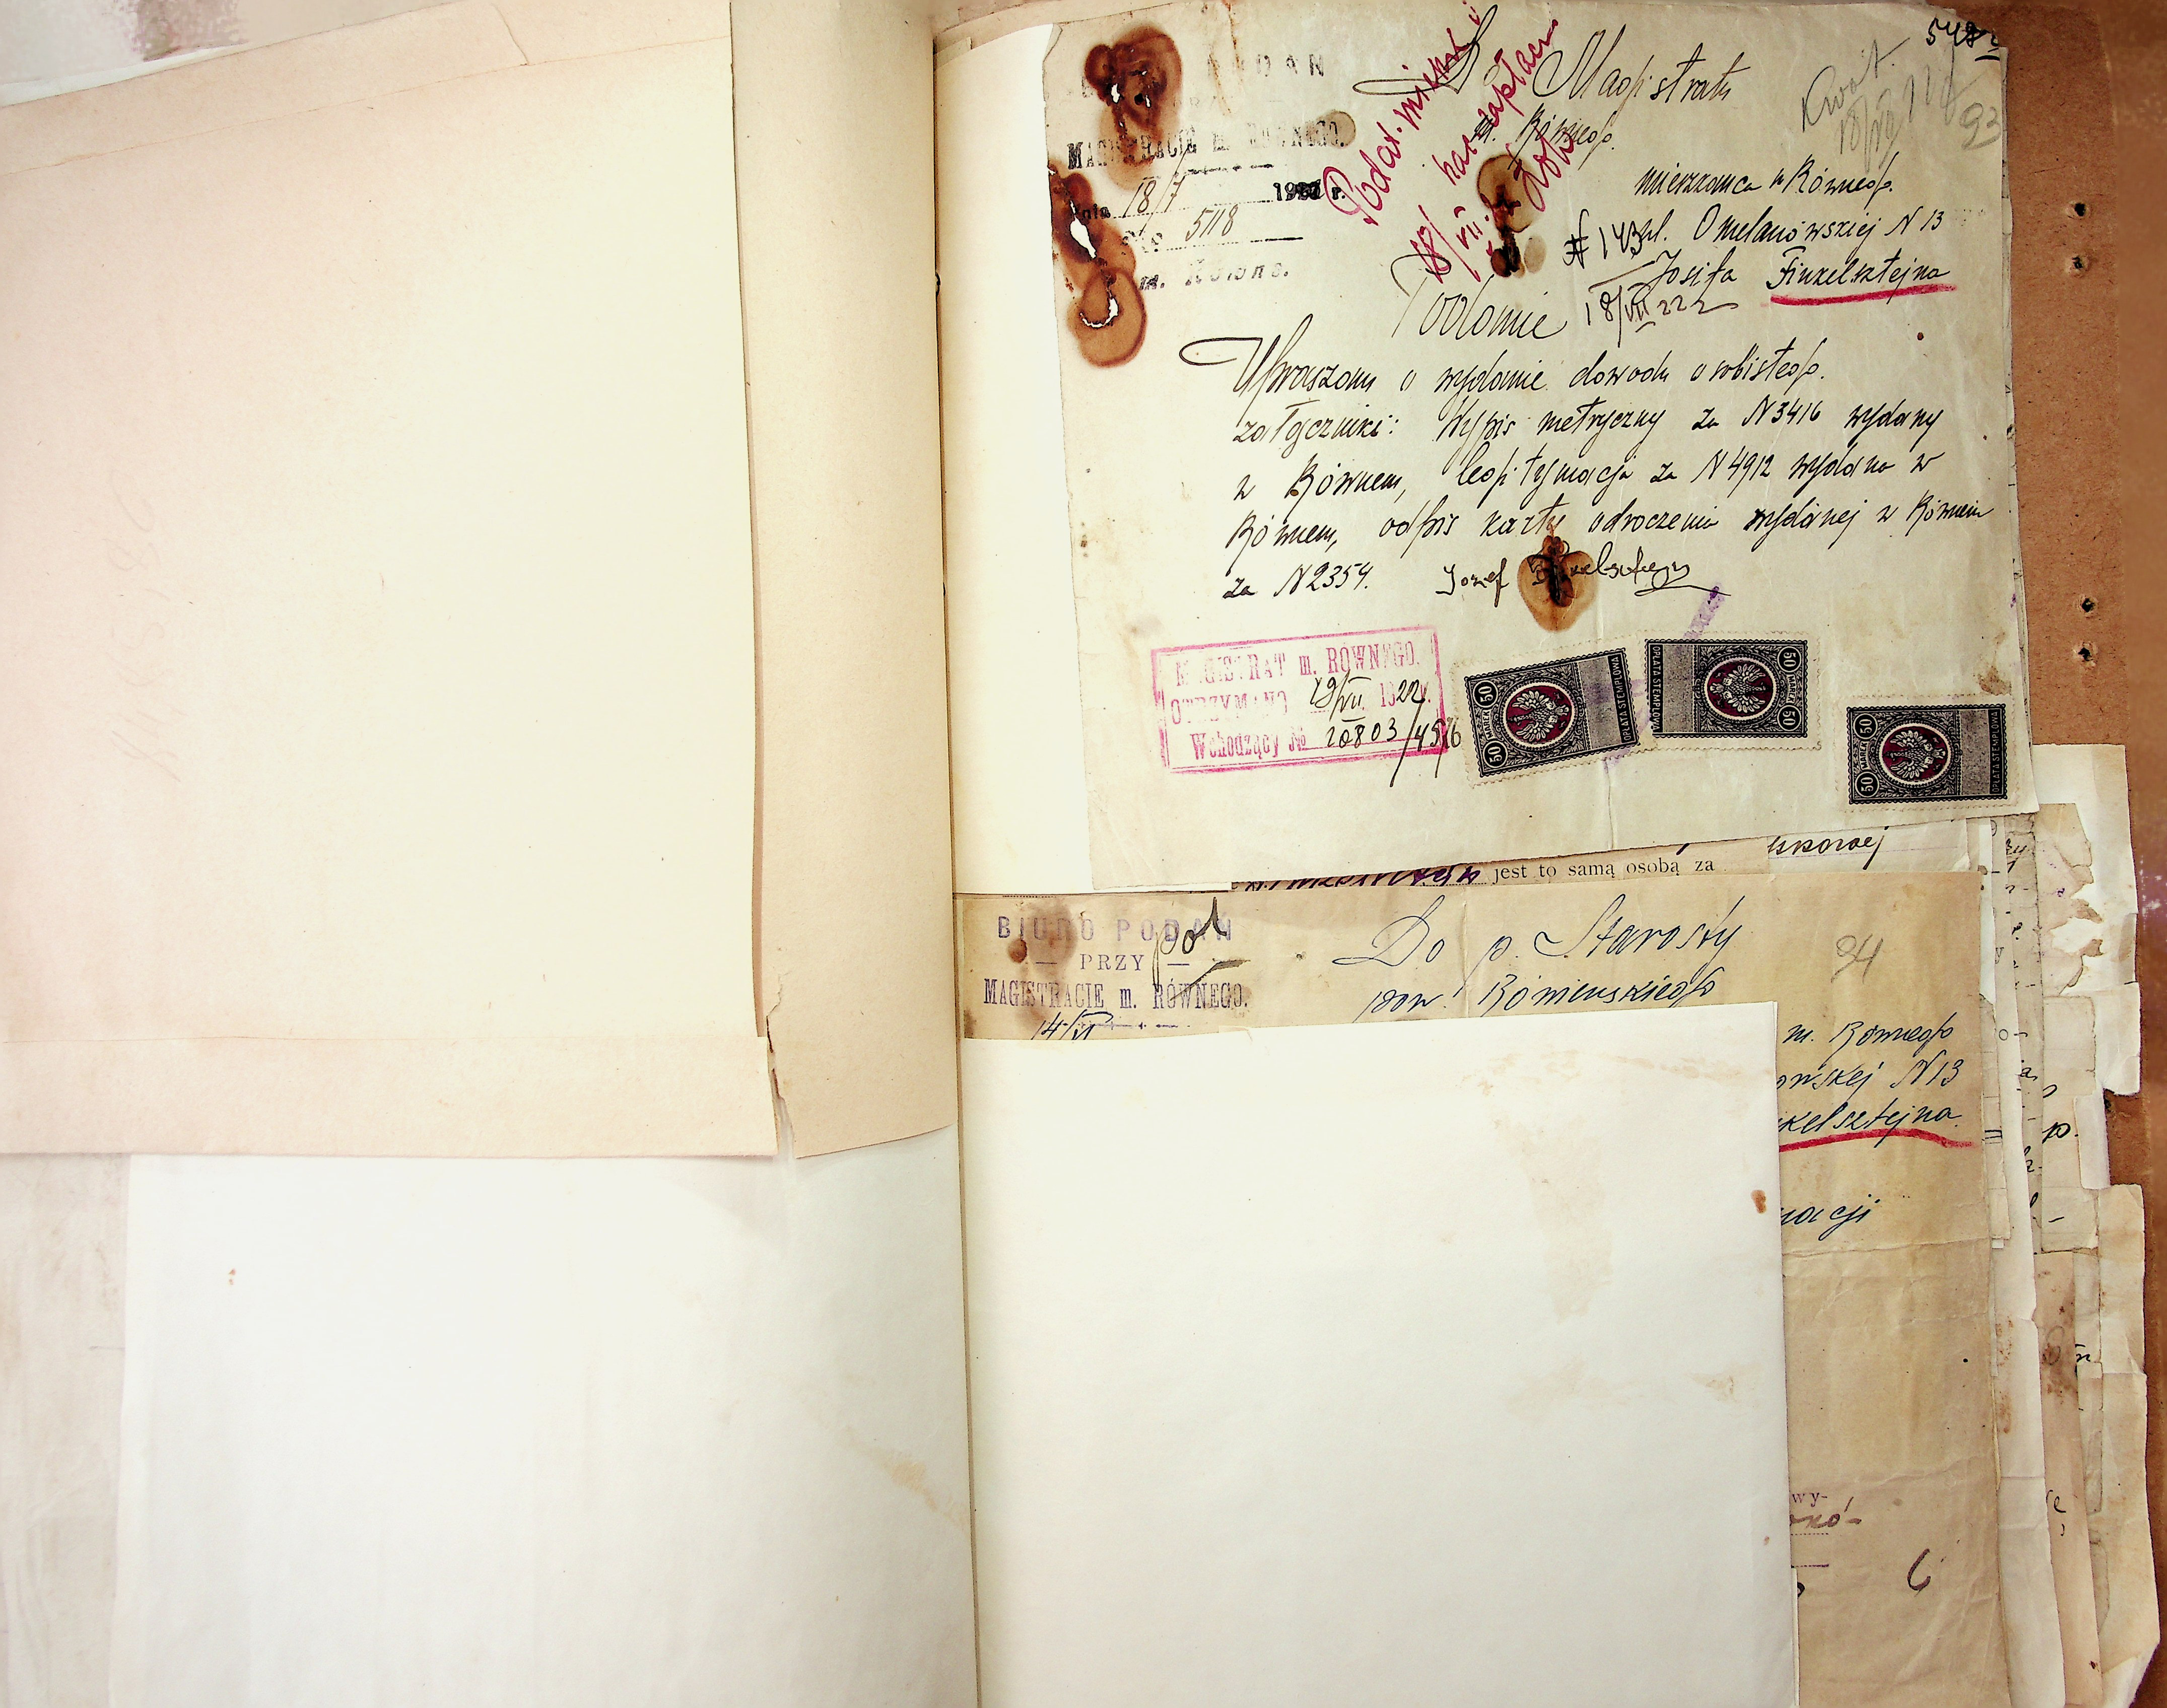 548
93
PODAN
MAGISTRACIE m. RÓWNEGO.
dnia 18/7 192 r.
№ 5118
m. Równe.
Podat. miejski
zapłacił
18/VII
Do Magistratu
m. Równego.
mieszkańca m. Równego
ul. Omelanowskiej N 13
Josifa Finkelsztejna
№ 143
18/VII 22
Podanie
Upraszam o wydanie dowodu osobistego.
załączniki: Wypis metryczny za N3416 wydany
w Równem, legitymacja za N4912 wydana w
Równem, odpis karty odroczenia wydanej w Równem
za N2354. Jozef Finkelsztejn
MAGISTRAT m. RÓWNEGO.
OTRZYMANO 19/VII 1922 r.
Wchodzący № 10803/4516
50 MAREK 50
OPŁATA STEMPLOWA
50 MAREK 50
OPŁATA STEMPLOWA
50 MAREK 50
OPŁATA STEMPLOWA
skowej
jest to samą osobą za
BIURO PODAŃ
— PRZY —
MAGISTRACIE m. RÓWNEGO.
14/VI
Do p. Starosty
pow. Rówieńskiego
94
m. Równego
owskej N13
kelsztejna
macji
wy-
6